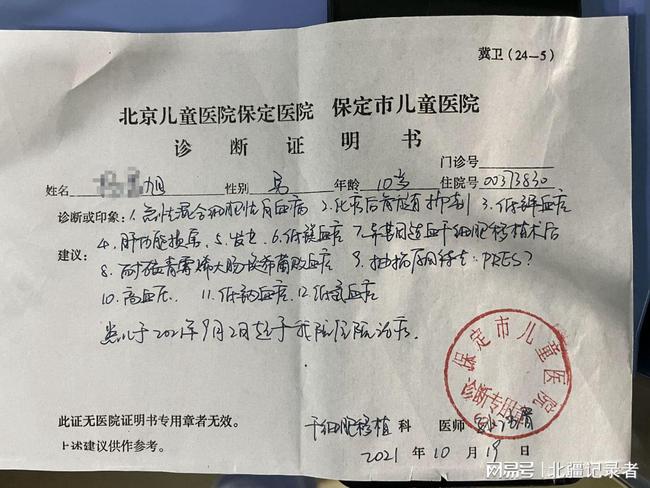 冀卫(24-5)
北京儿童医院保定医院 保定市儿童医院
诊断证明书
门诊号
姓名 旭 性别 男 年龄 10岁 住院号 00373830
诊断或印象: 1.急性混合细胞性白血病 2.化疗后骨髓抑制 3.低钾血症
建议: 4.肝功能损害 5.发热 6.低镁血症 7.异基因造血干细胞移植术后
8.耐碳青霉烯大肠埃希菌败血症 9.抽搐原因待查:PRES?
10.高血压 11.低钠血症 12.低氯血症
患儿于2021年9月2日起于我院住院治疗。
保定市儿童医院
诊断专用章
此证无医院证明书专用章者无效。
上述建议供作参考。
干细胞移植 科 医师
2021 年 10 月 19 日
网易号 | 北疆记录者